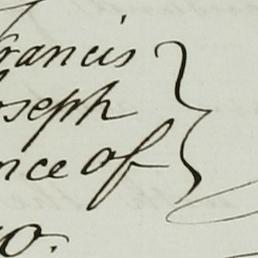 rancis
oseph
nce of
o.